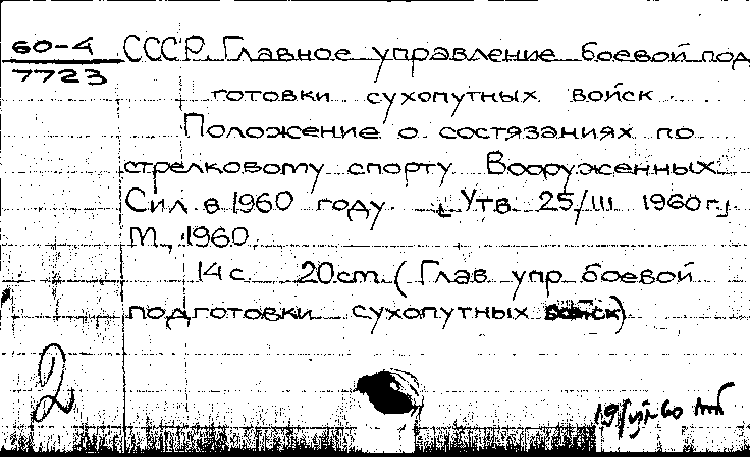 60-4 СССР. Главное управление боевой под
7723
готовки сухопутных войск.
Положение о состязаниях по
стрелковому спорту Вооруженных
Сил в 1960 году. [Утв. 25/III 1960 г.]
М., 1960.
14 с. 20 cm. (Глав. упр. боевой
подготовки сухопутных войск)
2